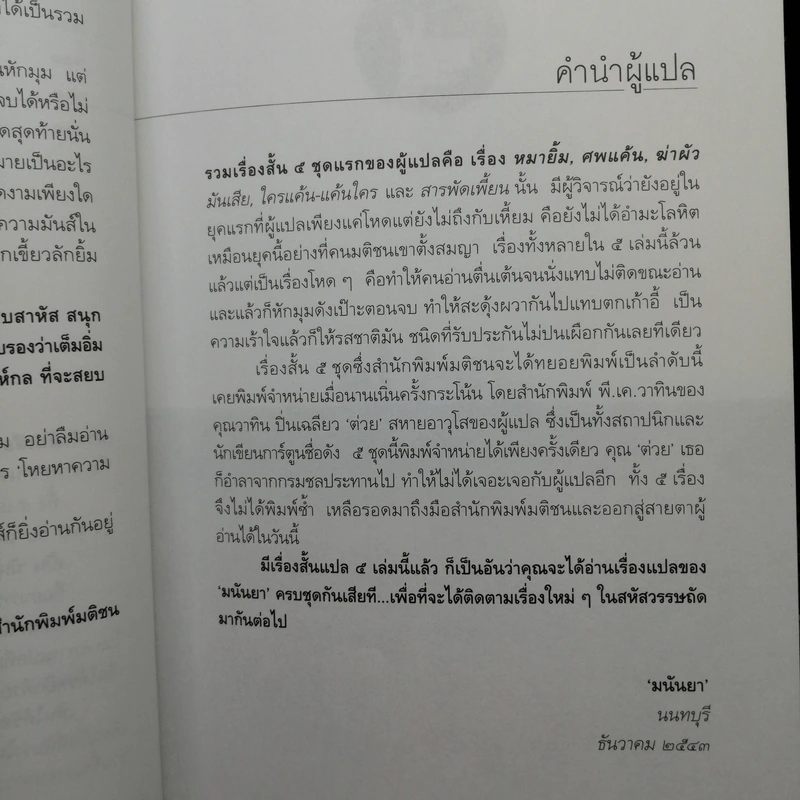 ได้เป็นรวม
นหักมุม แต่
จบได้หรือไม่
ดสุดท้ายนั่น
มายเป็นอะไร
ดงามเพียงใด
ความมันส์ใน
กเขี้ยวลักยิ้ม
บสาหัส สนุก
บรองว่าเต็มอิ่ม
ห์กล ที่จะสยบ
ม อย่าลืมอ่าน
ร 'โหยหาความ
ส์ก็ยิ่งอ่านกันอยู่
สำนักพิมพ์มติชน
คำนำผู้แปล
รวมเรื่องสั้น ๕ ชุดแรกของผู้แปลคือ เรื่อง หมายิ้ม, ศพแค้น, ฆ่าผัว
มันเสีย, ใครแค้น-แค้นใคร และ สารพัดเพี้ยน นั้น มีผู้วิจารณ์ว่ายังอยู่ใน
ยุคแรกที่ผู้แปลเพียงแค่โหดแต่ยังไม่ถึงกับเหี้ยม คือยังไม่ได้อำมะโลหิต
เหมือนยุคนี้อย่างที่คนมติชนเขาตั้งสมญา เรื่องทั้งหลายใน ๕ เล่มนี้ล้วน
แล้วแต่เป็นเรื่องโหด ๆ คือทำให้คนอ่านตื่นเต้นจนนั่งแทบไม่ติดขณะอ่าน
และแล้วก็หักมุมดังเป๊าะตอนจบ ทำให้สะดุ้งผวากันไปแทบตกเก้าอี้ เป็น
ความเร้าใจแล้วก็ให้รสชาติมัน ชนิดที่รับประกันไม่ปนเผือกกันเลยทีเดียว
เรื่องสั้น ๕ ชุดซึ่งสำนักพิมพ์มติชนจะได้ทยอยพิมพ์เป็นลำดับนี้
เคยพิมพ์จำหน่ายเมื่อนานเนิ่นครั้งกระโน้น โดยสำนักพิมพ์ พี.เค.วาทินของ
คุณวาทิน ปิ่นเฉลียว 'ต่วย' สหายอาวุโสของผู้แปล ซึ่งเป็นทั้งสถาปนิกและ
นักเขียนการ์ตูนชื่อดัง ๕ ชุดนี้พิมพ์จำหน่ายได้เพียงครั้งเดียว คุณ 'ต่วย' เธอ
ก็อำลาจากกรมชลประทานไป ทำให้ไม่ได้เจอะเจอกับผู้แปลอีก ทั้ง ๕ เรื่อง
จึงไม่ได้พิมพ์ซ้ำ เหลือรอดมาถึงมือสำนักพิมพ์มติชนและออกสู่สายตาผู้
อ่านได้ในวันนี้
มีเรื่องสั้นแปล ๕ เล่มนี้แล้ว ก็เป็นอันว่าคุณจะได้อ่านเรื่องแปลของ
'มนันยา' ครบชุดกันเสียที...เพื่อที่จะได้ติดตามเรื่องใหม่ ๆ ในสหัสวรรษถัด
มากันต่อไป
'มนันยา'
นนทบุรี
ธันวาคม ๒๕๔๓